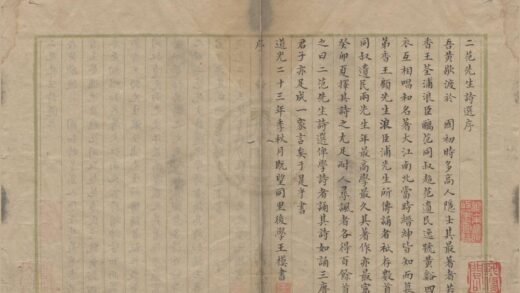 二范先生詩選序
吾黄歇渡於　國初時多高人隱士其最著者
香王荃浦浪臣 范同叔 范遺民逸號黄谿四
衣互相唱和名著大江南北當時搢紳皆知而慕
第香王顧先生浪臣浦先生所傳誦者祇存數首
同叔遺民兩先生年最高學最久其著作亦最富
癸卯夏擇其詩之尤足耐人尋諷者各得百餘首
之曰二范先生詩選俾學詩者誦其詩如誦三唐
君子亦足成一家言矣于是乎書
道光二十三年季秋月既望同里後學王 書
序
一